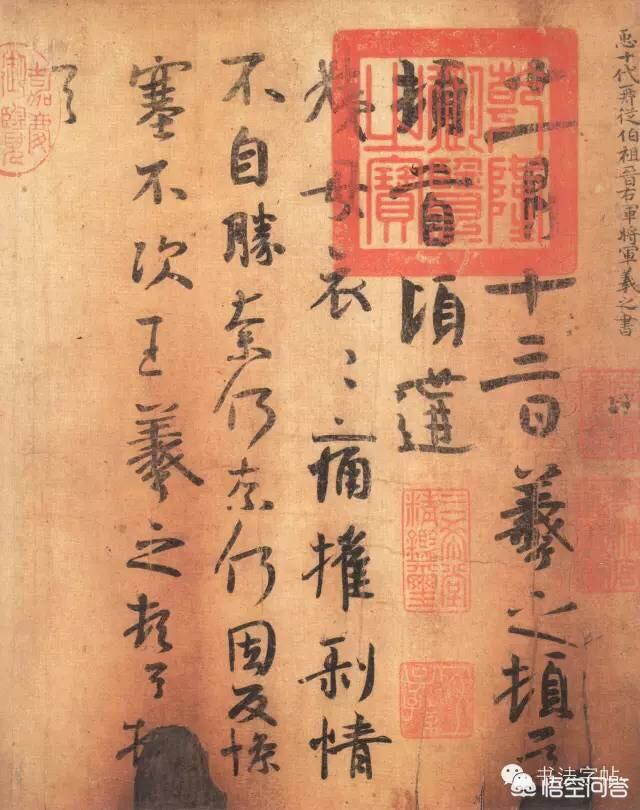 𢘑十代再從伯祖晉右軍將軍羲之書
十一月十三日羲之頓首
頓首頃遘
姨母哀〻痛摧剝情
不自勝奈何奈何因反慘
塞不次王羲之頓首頓
首
乾隆御覽之寶
三希堂精鑑璽
嘉慶御覽
书法字帖
悟空问答